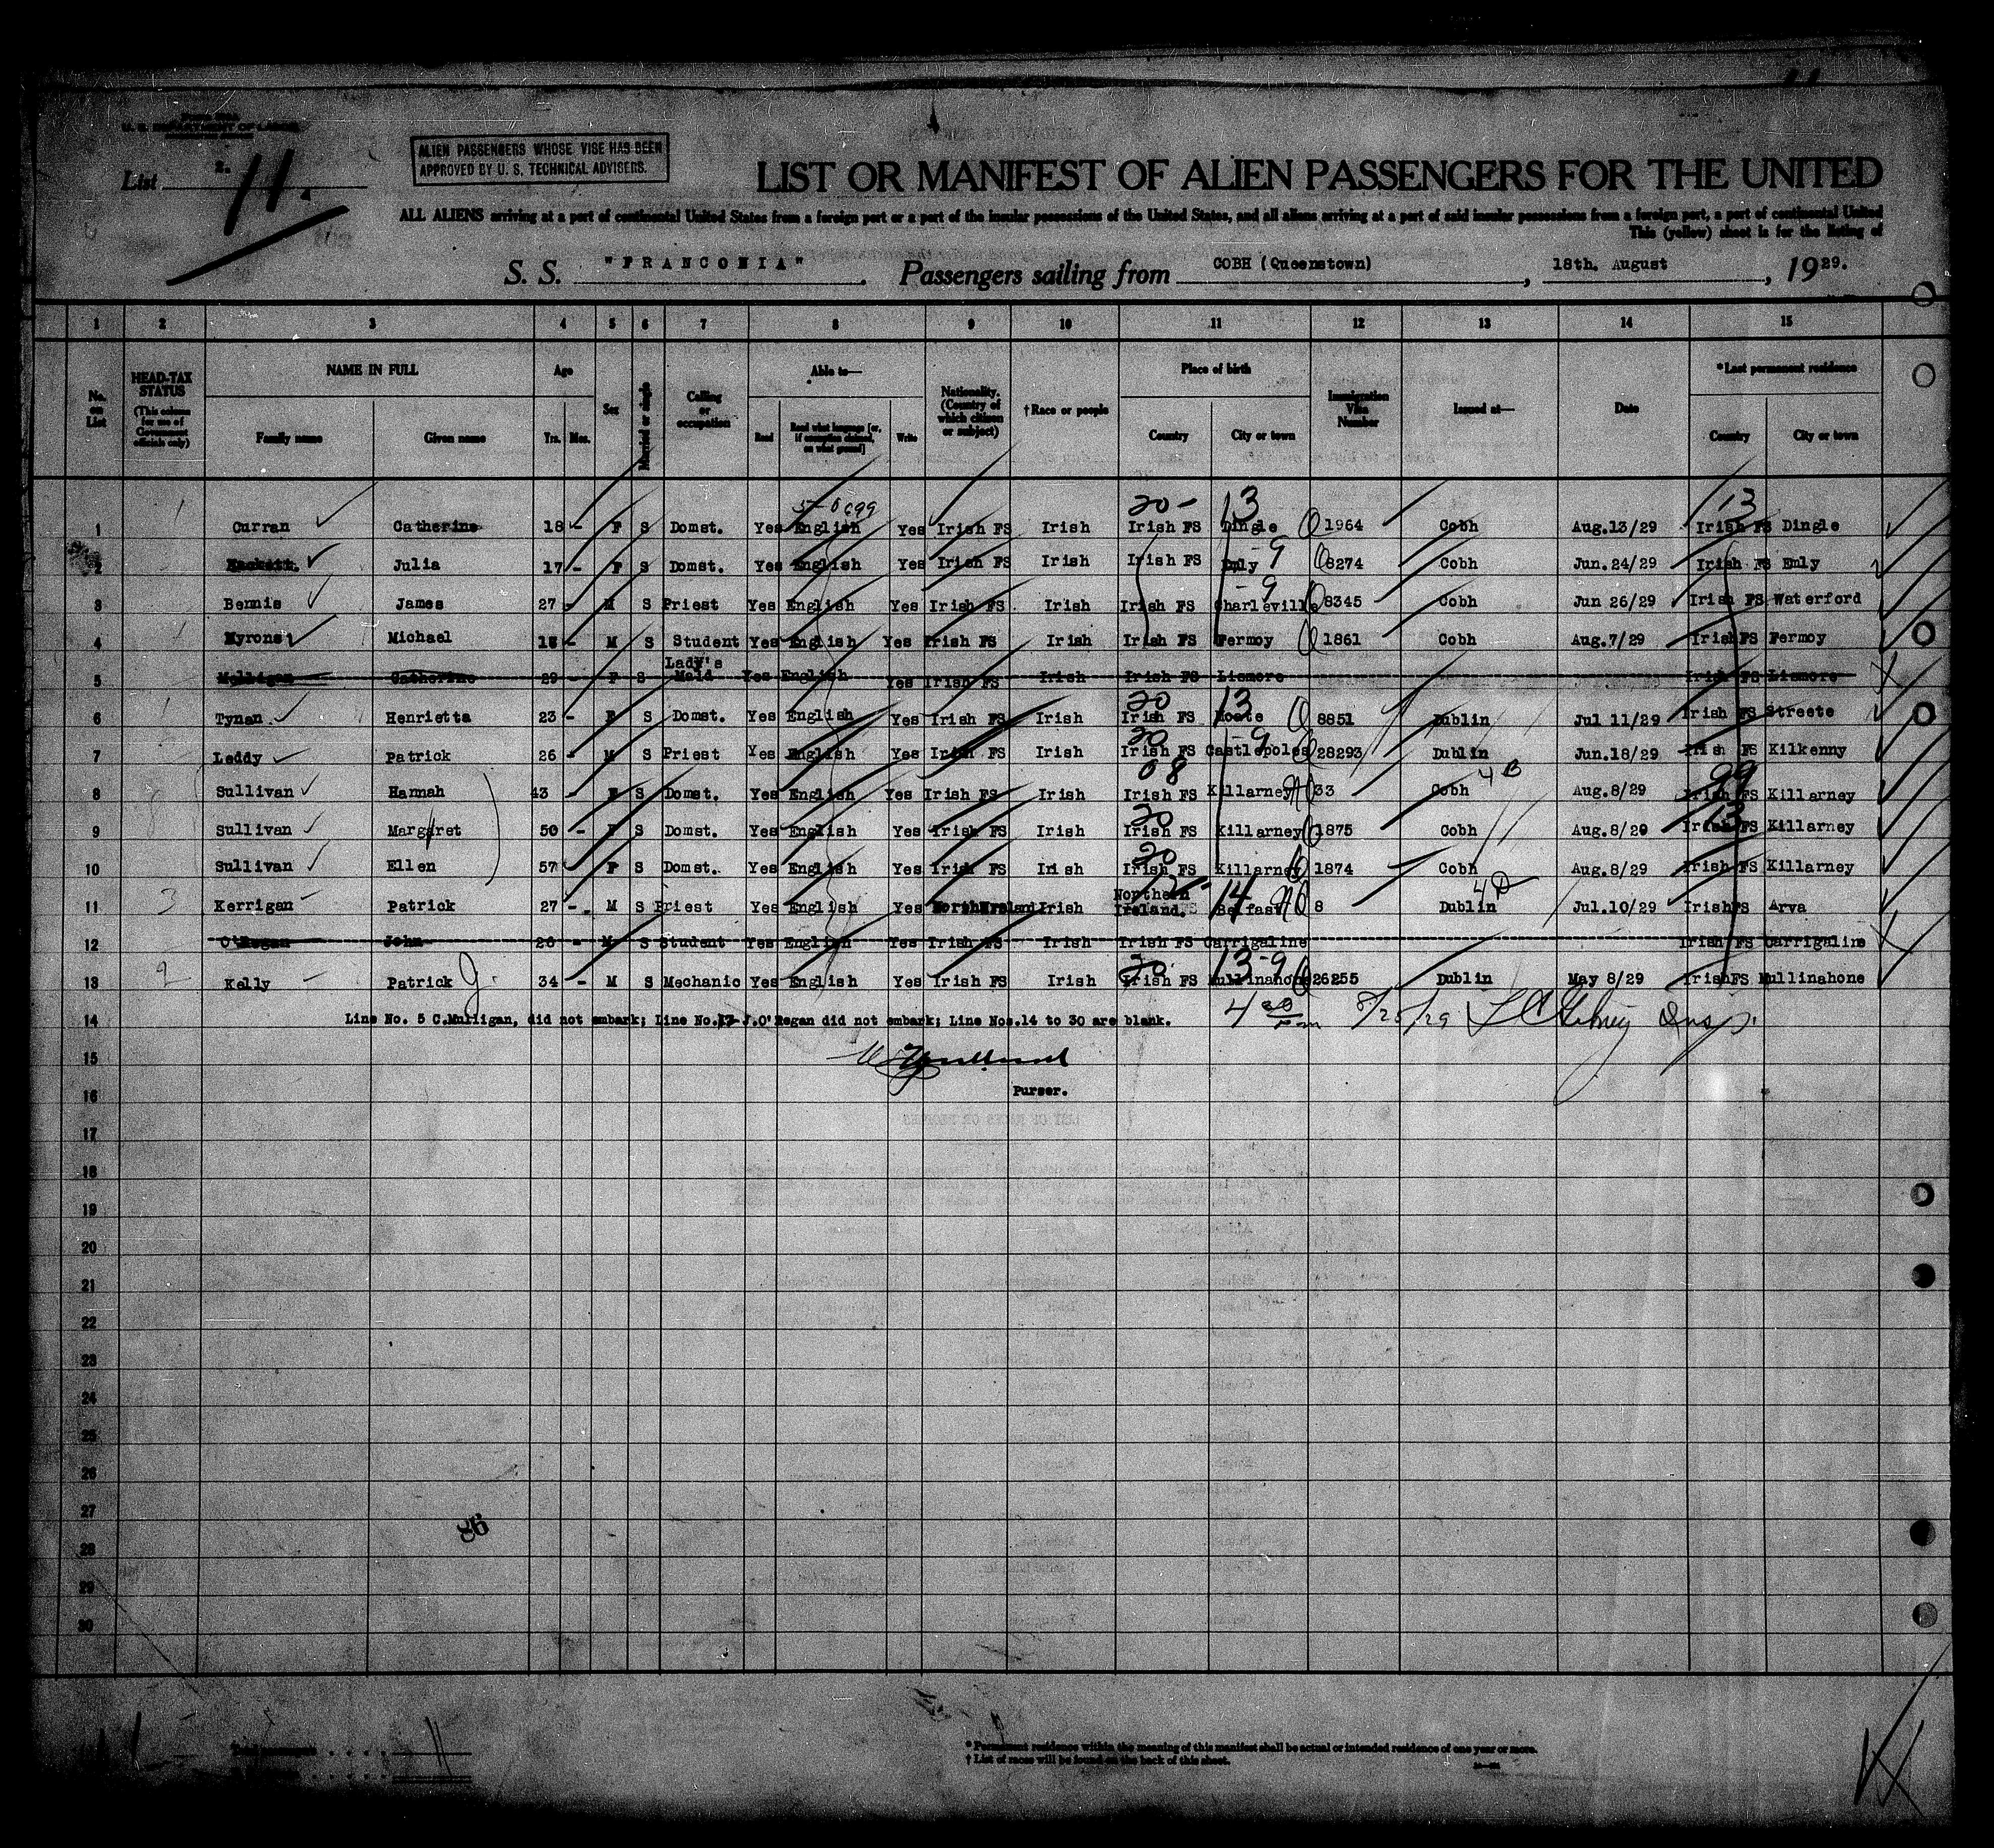 U. S. DEPARTMENT OF LABOR
List 2. 11.
ALIEN PASSENGERS WHOSE VISE HAS BEEN
APPROVED BY U. S. TECHNICAL ADVISERS.
LIST OR MANIFEST OF ALIEN PASSENGERS FOR THE UNITED
ALL ALIENS arriving at a port of continental United States from a foreign port or a port of the insular possessions of the United States, and all aliens arriving at a port of said insular possessions from a foreign port, a port of continental United
This (yellow) sheet is for the listing of
S. S. "FRANCONIA". Passengers sailing from COBH (Queenstown), 18th. August, 1929.
1 2 3 4 5 6 7 8 9 10 11 12 13 14 15
No. on List
HEAD-TAX STATUS (This column for use of Government officials only)
NAME IN FULL Family name Given name
Age Yrs. Mos.
Sex
Married or single
Calling or occupation
Able to— Read Read what language [or, if exemption claimed, on what ground] Write
Nationality. (Country of which citizen or subject)
†Race or people
Place of birth Country City or town
Immigration Visa Number
Issued at—
Date
*Last permanent residence Country City or town
5-0699 20- 13 13
1 Curran Catherine 18 - F S Domst. Yes English Yes Irish FS Irish Irish FS Dingle 1964 Cobh Aug.13/29 Irish FS Dingle
2 Julia 17 - F S Domst. Yes English Yes Irish FS Irish Irish FS Emly 9 8274 Cobh Jun.24/29 Irish FS Emly
3 Bennis James 27 - M S Priest Yes English Yes Irish FS Irish Irish FS Charleville 9 8345 Cobh Jun 26/29 Irish FS Waterford
4 Michael M S Student Yes English Yes Irish FS Irish Irish FS Fermoy 1861 Cobh Aug.7/29 Irish FS Fermoy
5 Mulligan Catherine 29 - F S Lady's Maid Yes English Yes Irish FS Irish Irish FS Lismore Irish FS Lismore
6 Tynan Henrietta 23 - F S Domst. Yes English Yes Irish FS Irish 20 Irish FS 13 Moate 8851 Dublin Jul 11/29 Irish FS Streete
7 Leddy Patrick 26 - M S Priest Yes English Yes Irish FS Irish 20 Irish FS 9 Castlepoles 28293 Dublin Jun.18/29 Irish FS Kilkenny
8 Sullivan Hannah 43 - F S Domst. Yes English Yes Irish FS Irish 08 Irish FS Killarney 33 Cobh 4B Aug.8/29 99 Irish FS Killarney
9 Sullivan Margaret 50 - F S Domst. Yes English Yes Irish FS Irish 20 Irish FS Killarney 1875 Cobh Aug.8/29 13 Irish FS Killarney
10 Sullivan Ellen 57 F S Domst. Yes English Yes Irish FS Irish 20 Irish FS Killarney 1874 Cobh Aug.8/29 Irish FS Killarney
11 3 Kerrigan Patrick 27 - M S Priest Yes English Yes Irish Northern Ireland. 14 Belfast 8 Dublin 4D Jul.10/29 Irish FS Arva
12 O'Regan John 26 - M S Student Yes English Yes Irish FS Irish Irish FS Carrigaline Irish FS Carrigaline
13 2 Kelly Patrick J. 34 - M S Mechanic Yes English Yes Irish FS Irish 20 Irish FS 13-9 Mullinahone 26255 Dublin May 8/29 Irish FS Mullinahone
14 Line No. 5 C.Mulligan, did not embark; Line No.12 J.O'Regan did not embark; Line Nos.14 to 30 are blank. 4 30 pm 8/25/29 Insp.
15
16 Purser.
17
18
19
20
21
22
23
24
25
26
27
86
28
29
30
Total passengers . . . . 11
* Permanent residence within the meaning of this manifest shall be actual or intended residence of one year or more.
† List of races will be found on the back of this sheet.